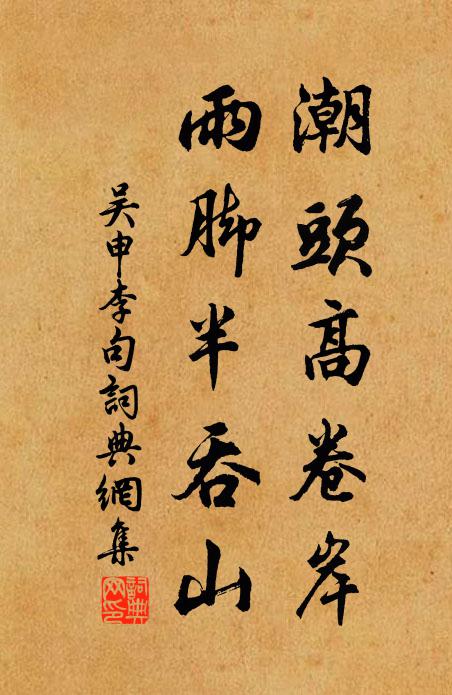 潮頭高卷岸
雨脚半吞山
吴申李句詞典網集
詞典网印